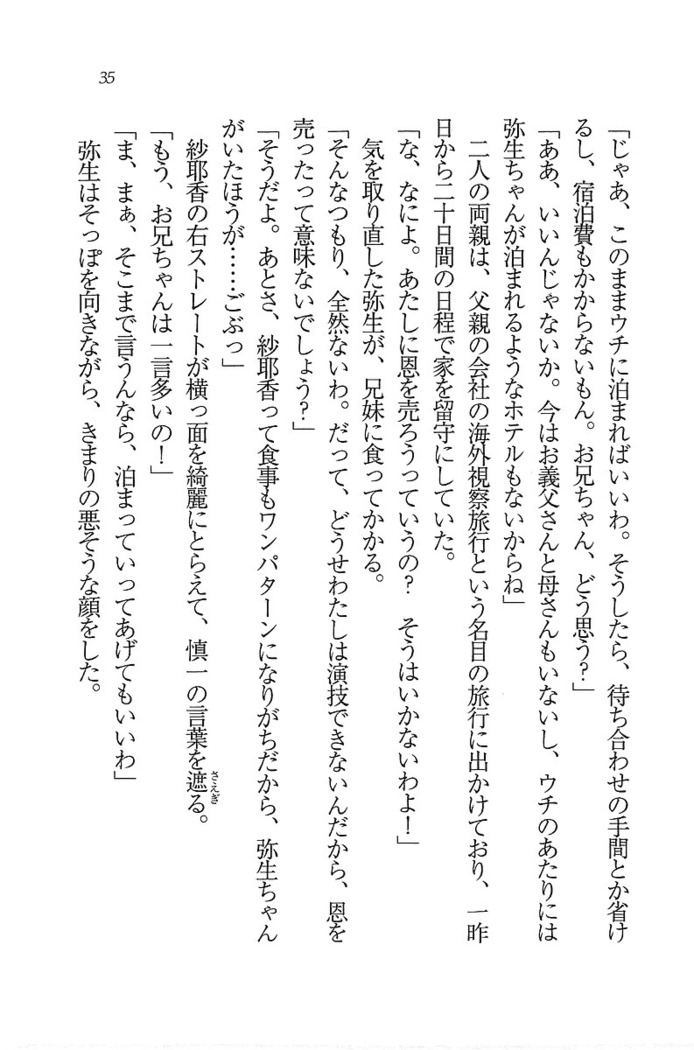 35
「じゃあ、このままウチに泊まればいいわ。そうしたら、待ち合わせの手間とか省け
るし、宿泊費もかからないもん。お兄ちゃん、どう思う?」
「ああ、いいんじゃないか。今はお義父さんと母さんもいないし、ウチのあたりには
弥生ちゃんが泊まれるようなホテルもないからね」
二人の両親は、父親の会社の海外視察旅行という名目の旅行に出かけており、一昨
日から二十日間の日程で家を留守にしていた。
「な、なによ。あたしに恩を売ろうっていうの? そうはいかないわよ!」
気を取り直した弥生が、兄妹に食ってかかる。
「そんなつもり、全然ないわ。だって、どうせわたしは演技できないんだから、恩を
売ったって意味ないでしょう?」
「そうだよ。あとさ、紗耶香って食事もワンパターンになりがちだから、弥生ちゃん
がいたほうが……ごぶっ」
紗耶香の右ストレートが横っ面を綺麗にとらえて、慎一の言葉を遮る。
さえぎ
「もう、お兄ちゃんは一言多いの!」
「ま、まぁ、そこまで言うんなら、泊まっていってあげてもいいわ」
弥生はそっぽを向きながら、きまりの悪そうな顔をした。